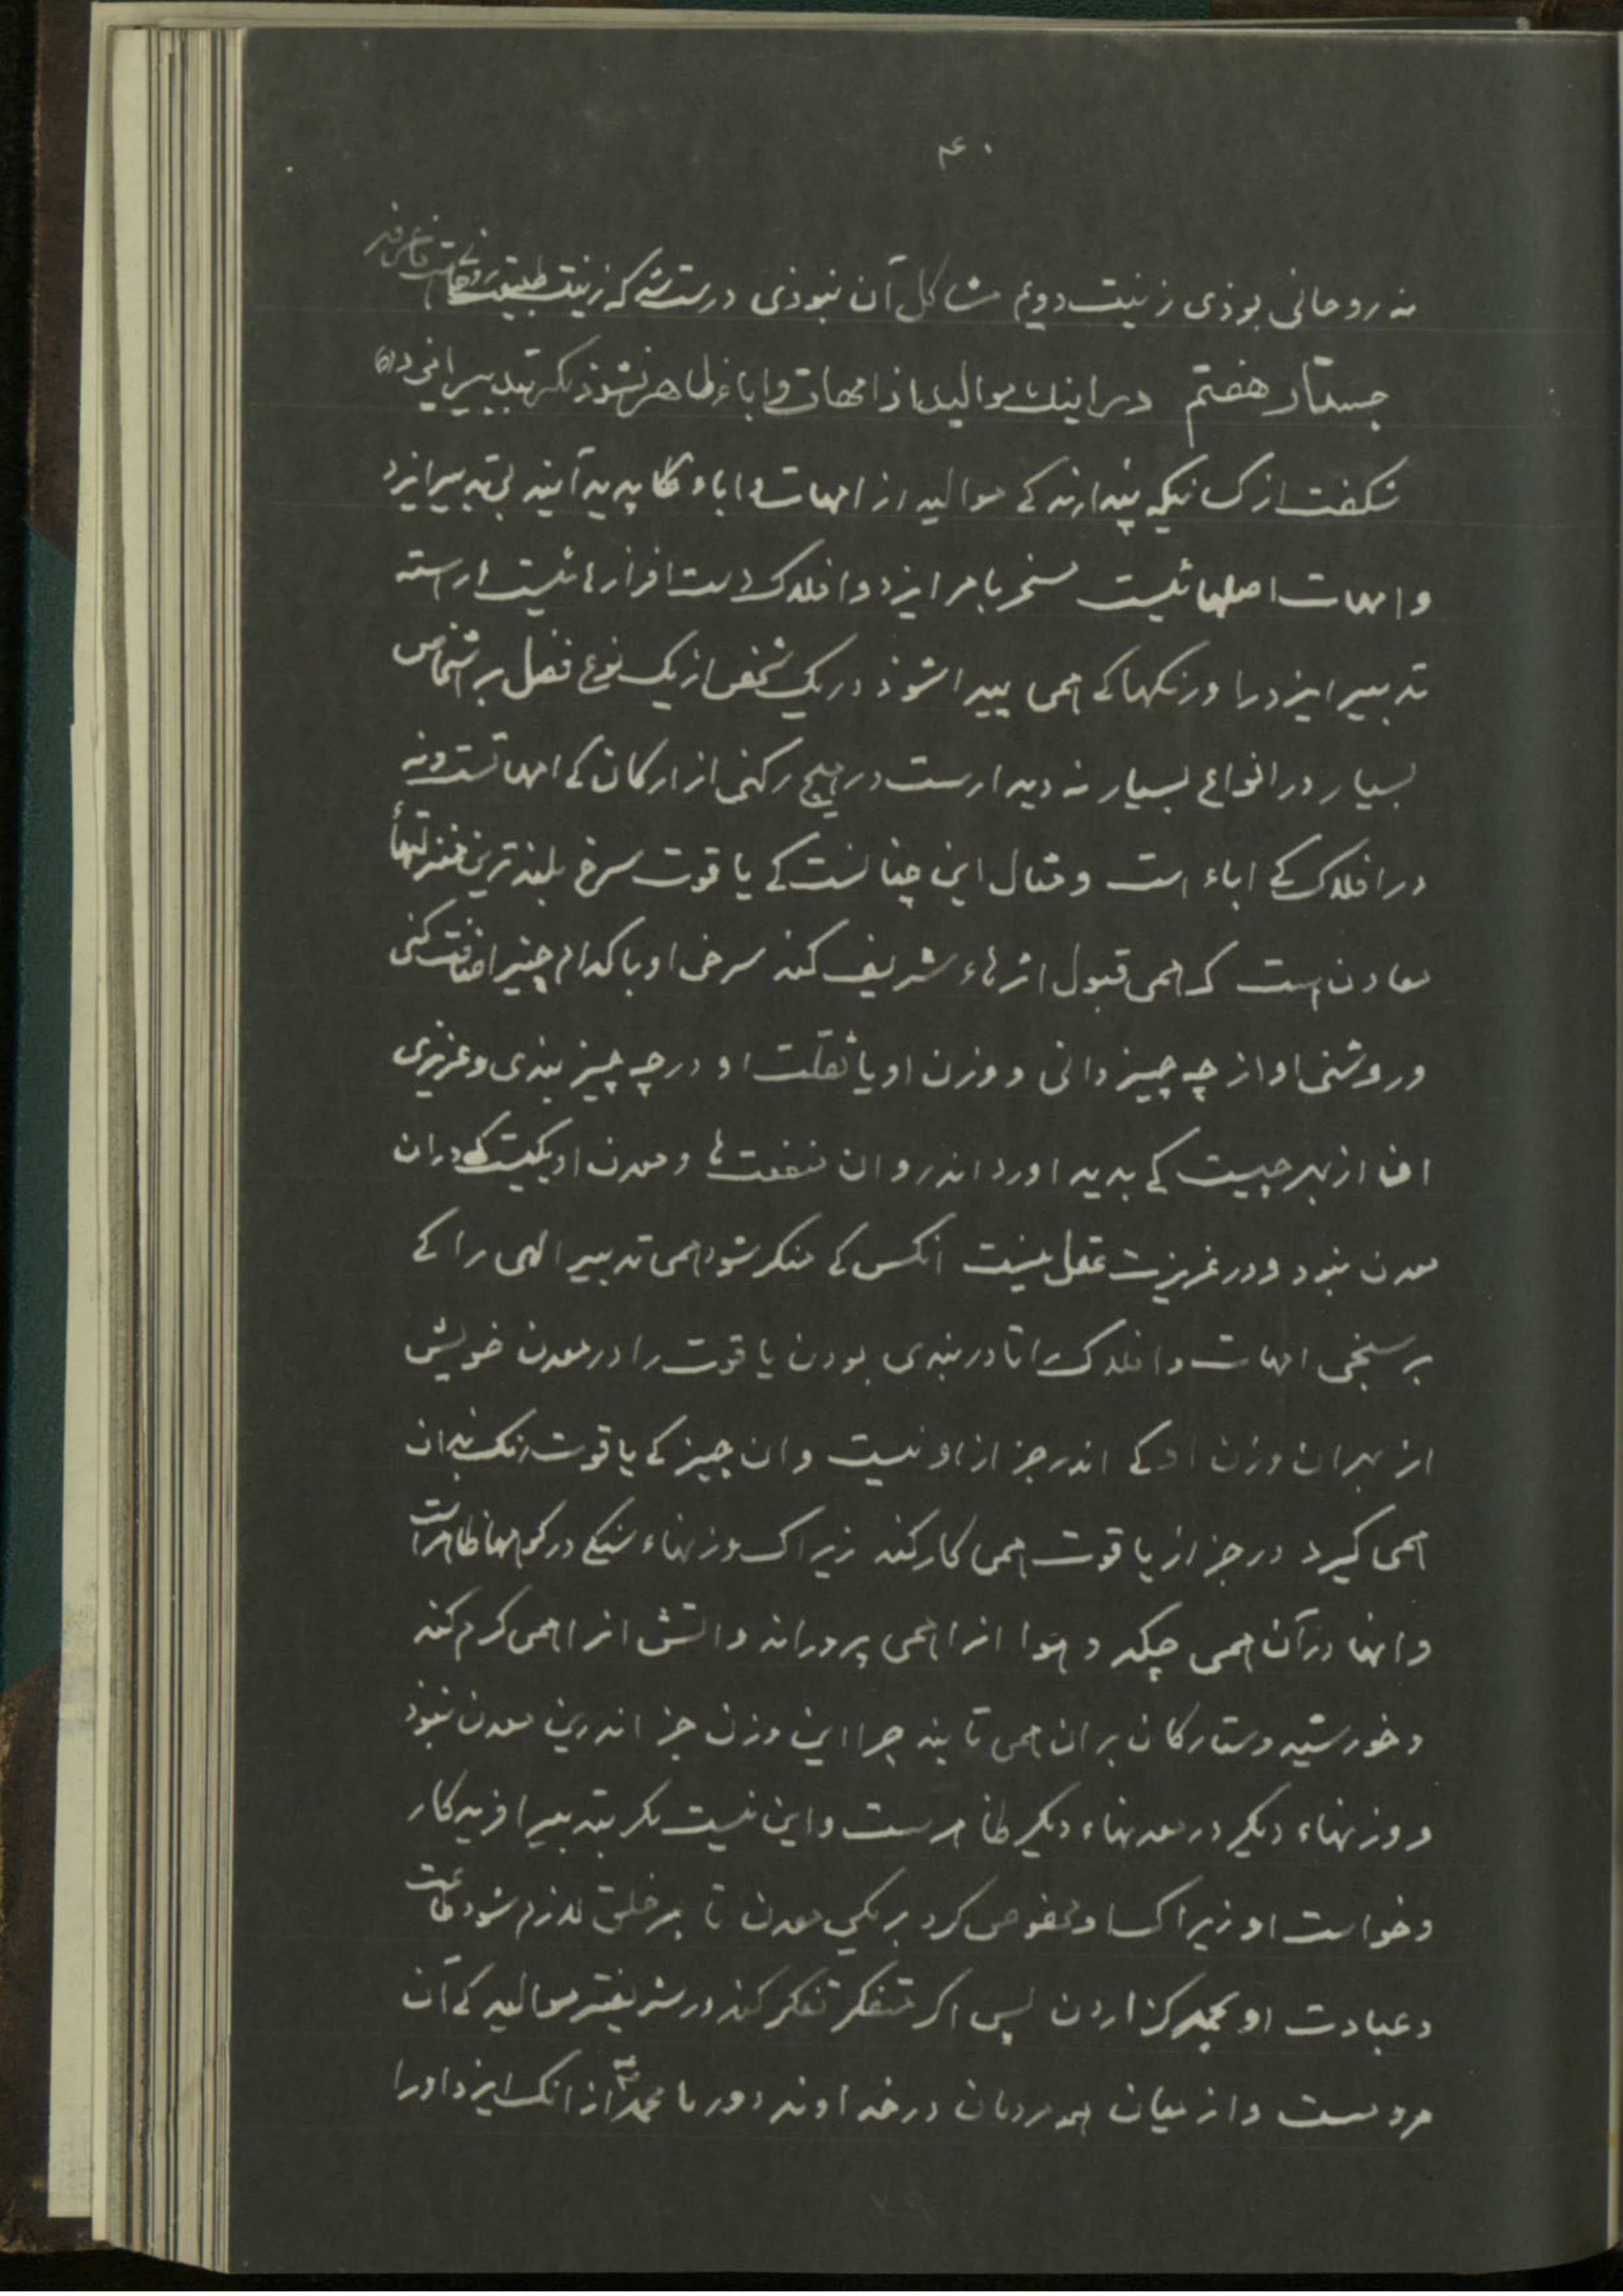 ۴۰
نه روحانی بوذی زینت دویم مشاکل آن نبوذی درست شد که زینت طبیعت روحانیت
جستار هفتم در اینک موالید از امهات و اباء ظاهر نشوذ مگر بتدبیر ایزد
شکفت از کسانیکه پندارند کے موالید از امهات و اباء پدید آیند بی تدبیر ایزد
و امهات اصلهائیست مسخر بامر ایزد و افلاک دست افزارهائیست اراسته
تدبیر ایزد را و رنکها کے همی پیدا شوذ در یک شخص از یک نوع فضل بر اشخاص
بسیار در انواع بسیار نه دیدارست در هیچ رکنی از ارکان کے امهاتست و نه
در افلاک کے اباء است و مثال این چنانست کے یاقوت سرخ بلندترین منزلتها
معادن است که همی قبول اثرهاء شریف کند سرخی او با کدام چیز اضافت کنی
و روشنی او از چه چیز دانی و وزن او یا ثقلت او در چه چیز بندی و عزیزی
ان از بهر چیست کے پدید اورد اندرو ان منفعت ها و معدن او یکیست کے دران
معدن نبود و در غریزت عقل نیست انکس کے منکر شود همی تدبیر الهی را کے
برسنجی امهات و افلاک را تا در بندی بودن یاقوت را در معدن خویش
از بهر ان وزن او کے اندر جز از او نیست و ان چیز کے یاقوت رنک بدان
همی کیرد در جز از یاقوت همی کار کند زیراک وزنهاء سنکے در کوهها ظاهر است
و ابها در آن همی چکد و هوا انرا همی پروراند و اتش انرا همی کرم کند
و خورشید و ستارکان بران همی تابند چرا این وزن جز اندرین معدن نبوذ
و وزنهاء دیکر در معدنهاء دیکر ظاهرست و این نیست مکر بتدبیر افریدکار
و خواست او زیراک او مخصوص کرد هر یکی معدن تا بر خلق لازم شود طاعت
و عبادت او بحمد کزاردن پس اکر متفکر تفکر کند در شریفتر موالید کے آن
مردست و از میان همه مردمان در خداوند دور ما محمد از انک ایزد او را